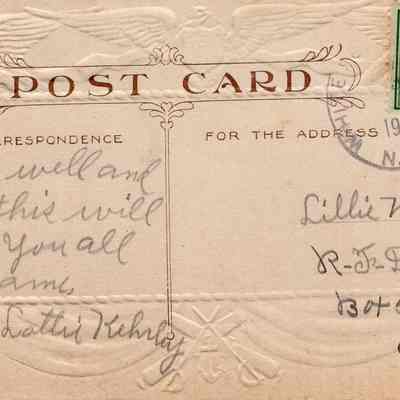 POST CARD
RRESPONDENCE
FOR THE ADDRESS
19
N.
well and
this will
You all
ame
Lottie Kehrley
Lillie
R-F-D
Box